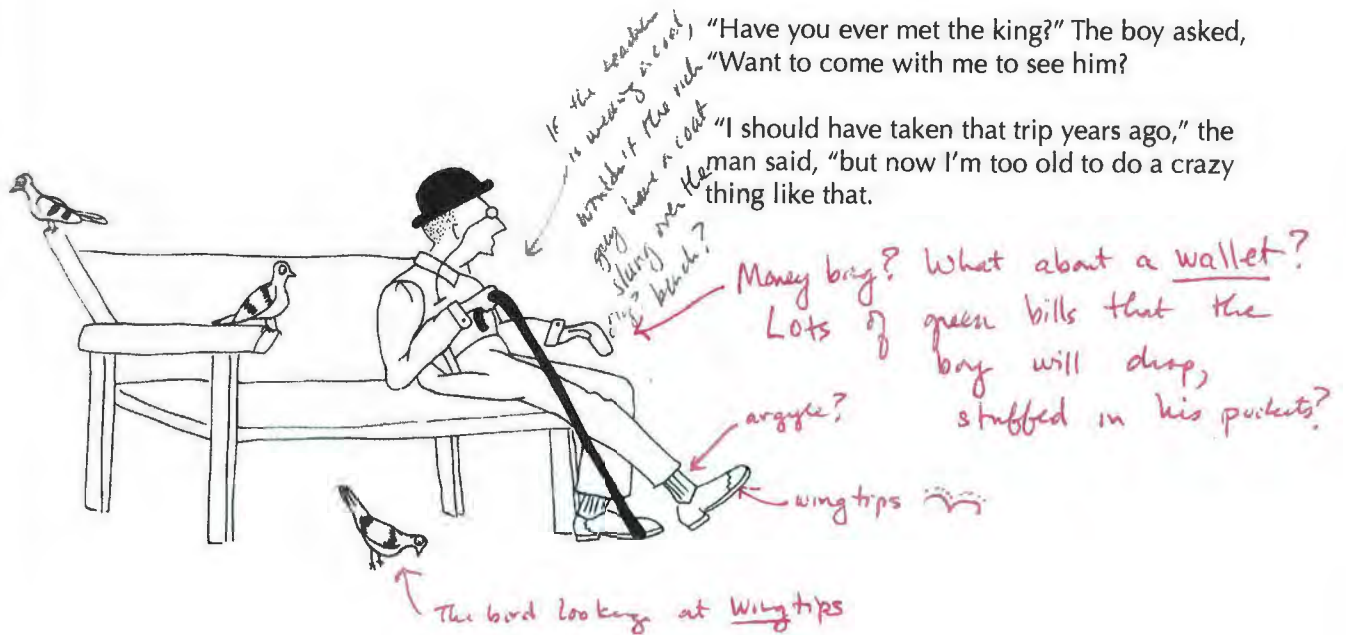 "Have you ever met the king?" The boy asked,
"Want to come with me to see him?
"I should have taken that trip years ago," the
man said, "but now I'm too old to do a crazy
thing like that.
If the teacher
is wearing a coat,
wouldn't the rich
guy have a coat
slung over the
bench?
Money bag? What about a wallet?
Lots of green bills that the
boy will drop,
stuffed in his pockets?
argyle?
wingtips
The bird looking at Wingtips